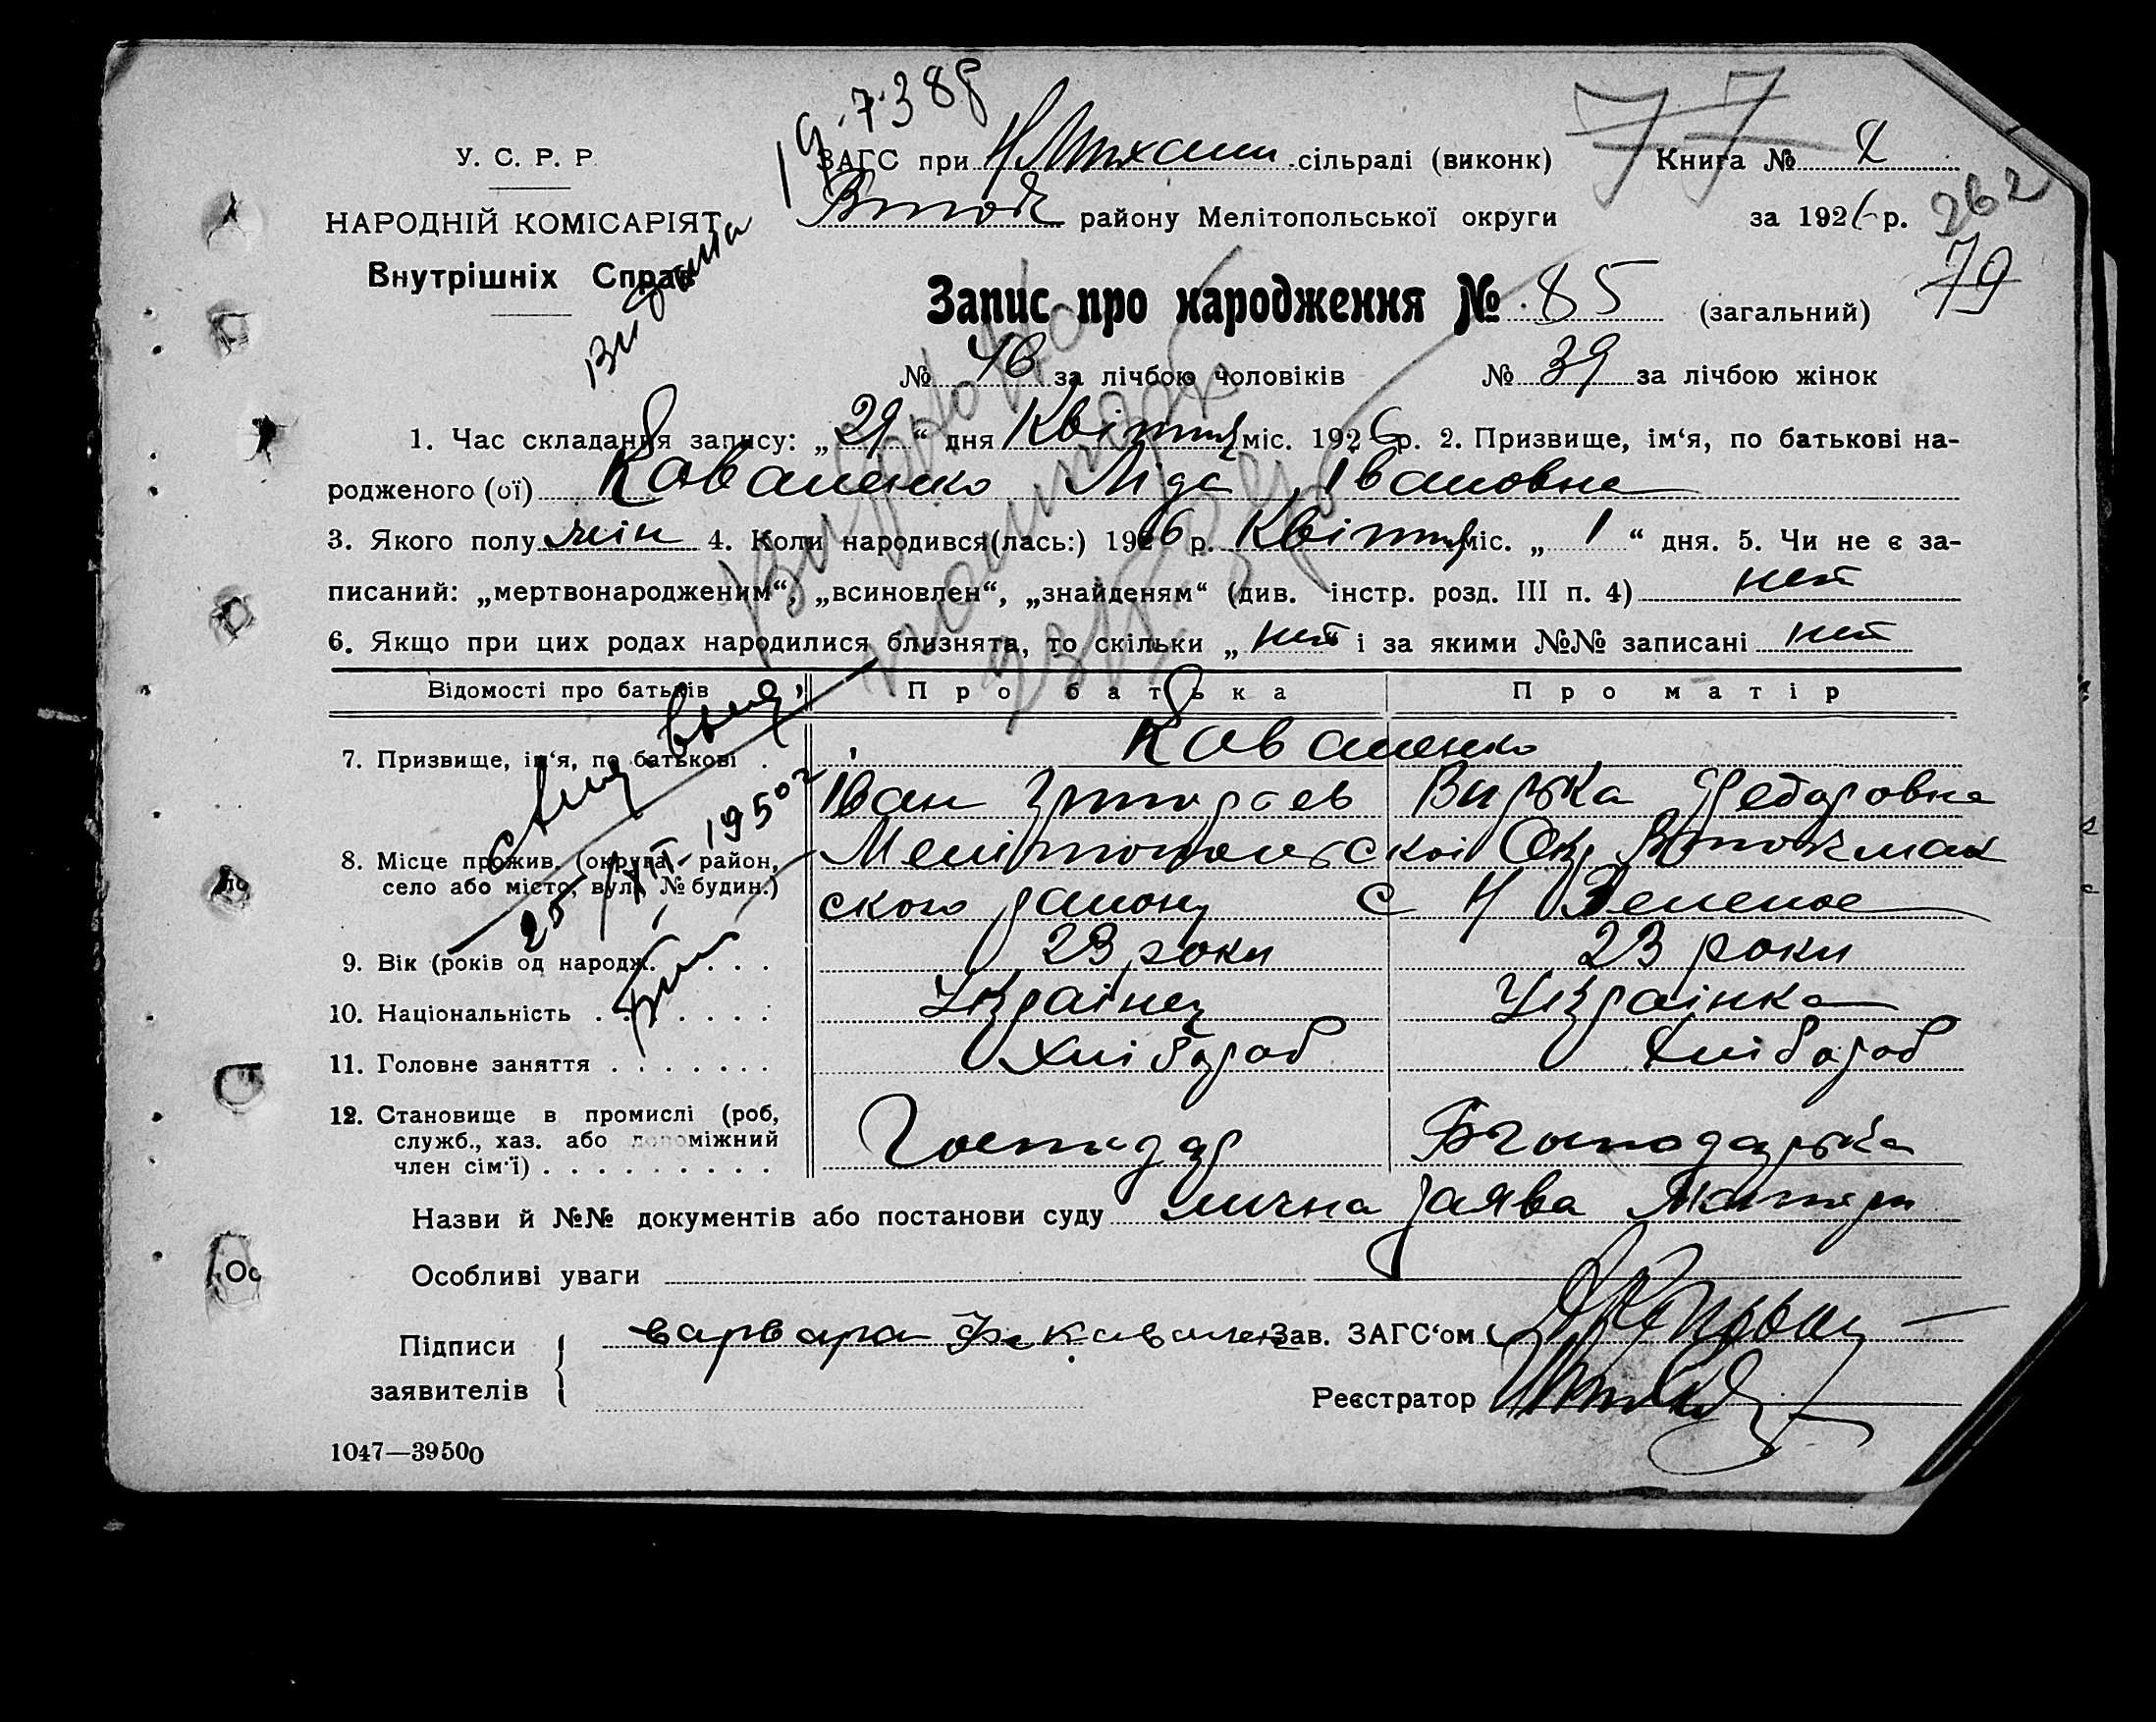 19.7.388
У. С. Р. Р.
ЗАГС при сільраді (виконк)
Книга №
77
НАРОДНІЙ КОМІСАРІЯТ
Внутрішніх Справ
району Мелітопольської округи
за 1926 р.
262
79
Запис про народження № 85 (загальний)
№ 46 за лічбою чоловіків № 39 за лічбою жінок
1. Час складання запису: „29“ дня Квітня міс. 1926 р. 2. Призвище, ім‘я, по батькові на-
родженого (ої) Коваленко Ліда Івановна
3. Якого полу жін 4. Коли народився(лась:) 1926 р. Квітня міс. „1“ дня. 5. Чи не є за-
писаний: „мертвонародженим“, „всиновлен“, „знайденям“ (див. інстр. розд. III п. 4) нет
6. Якщо при цих родах народилися близнята, то скільки „нет“ і за якими №№ записані нет
Відомості про батьків Про батька Про матір
7. Призвище, ім‘я, по батькові . Коваленко
Іван Федоровна
8. Місце прожив. (округа, район, Мелітопольської Окр
село або місто, вул. № будин.) ского району с Н Зеленое
9. Вік (років од народж. . . . . 23 роки 23 роки
10. Національність . . . . . . . Українец Українка
11. Головне заняття . . . . . . . Хлібороб Хлібороб
12. Становище в промислі (роб,
служб., хаз. або допоміжний
член сім‘ї) . . . . . . . . . Господар
Назви й №№ документів або постанови суду лична заява Матери
Особливі уваги
Підписи
заявителів
варвара Зав. ЗАГС‘ом
Реєстратор
1047—39500